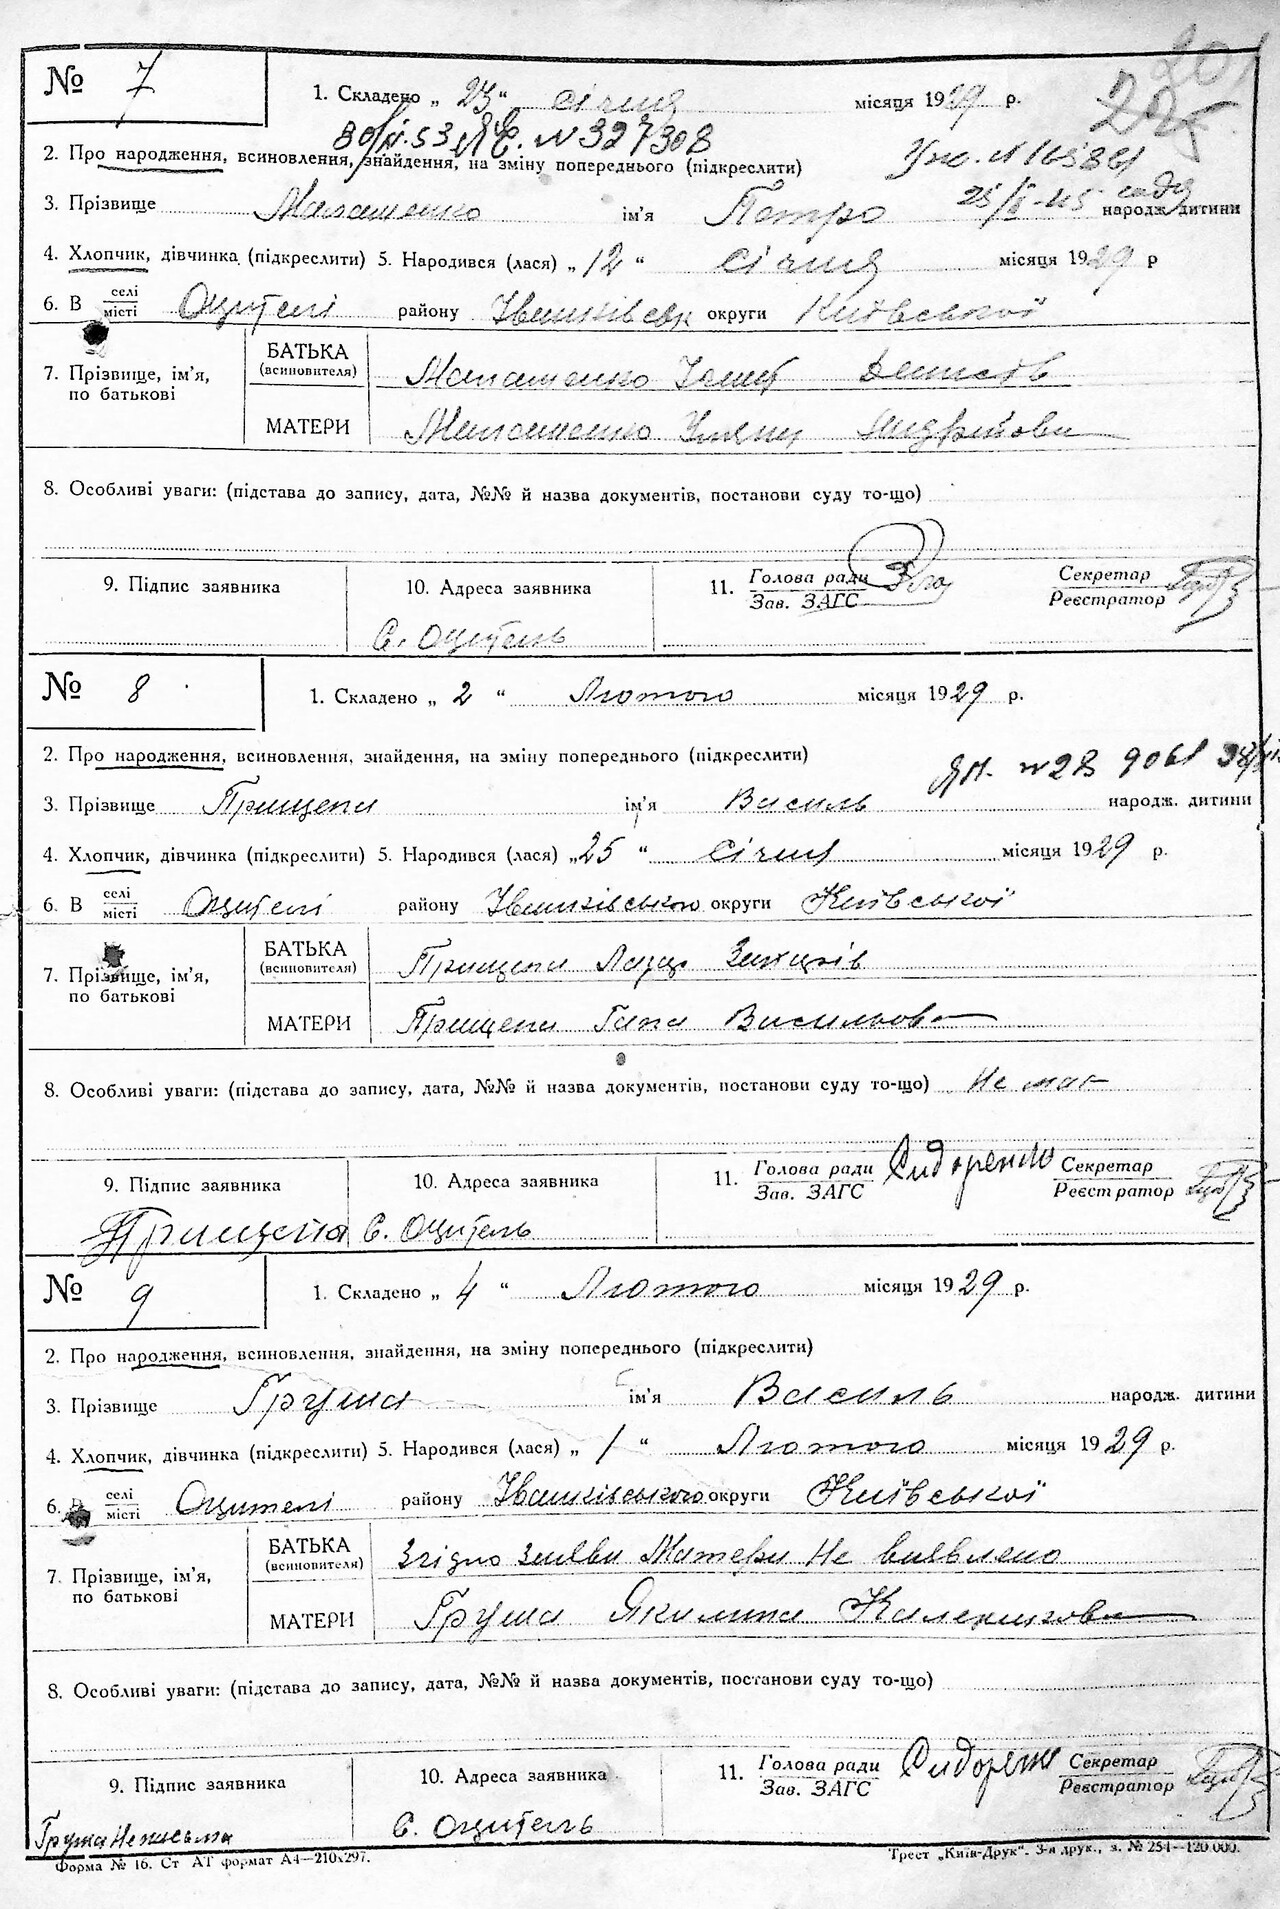 № 7
1. Складено „ 23 “ січня місяця 1929 р.
ЯЕ. N 327308
2. Про народження, всиновлення, знайдення, на зміну попереднього (підкреслити)
3. Прізвище ім'я Петро народж. дитини
4. Хлопчик, дівчинка (підкреслити) 5. Народився (лася) „ 12 “ січня місяця 1929 р
6. В селі/місті Оцителі району округи Київської
7. Прізвище, ім'я, по батькові
БАТЬКА (всиновителя)
МАТЕРИ
8. Особливі уваги: (підстава до запису, дата, №№ й назва документів, постанови суду то-що)
9. Підпис заявника
10. Адреса заявника
11. Голова ради / Зав. ЗАГС
Секретар / Реєстратор
С. Оцитель
№ 8
1. Складено „ 2 “ Лютого місяця 1929 р.
2. Про народження, всиновлення, знайдення, на зміну попереднього (підкреслити)
3. Прізвище Прищепа ім'я Василь народж. дитини
4. Хлопчик, дівчинка (підкреслити) 5. Народився (лася) „ 25 “ Січня місяця 1929 р.
6. В селі/місті Оцителі району Іванківського округи Київської
7. Прізвище, ім'я, по батькові
БАТЬКА (всиновителя) Прищепа
МАТЕРИ Прищепа Гапа Васильова
8. Особливі уваги: (підстава до запису, дата, №№ й назва документів, постанови суду то-що) Не має
9. Підпис заявника
10. Адреса заявника
11. Голова ради / Зав. ЗАГС Сидоренко
Секретар / Реєстратор
Прищепа С. Оцитель
№ 9
1. Складено „ 4 “ Лютого місяця 1929 р.
2. Про народження, всиновлення, знайдення, на зміну попереднього (підкреслити)
3. Прізвище Груша ім'я Василь народж. дитини
4. Хлопчик, дівчинка (підкреслити) 5. Народився (лася) „ 1 “ Лютого місяця 1929 р.
6. В селі/місті Оцителі району Іванківського округи Київської
7. Прізвище, ім'я, по батькові
БАТЬКА (всиновителя) Згідно Заяви Матери Не виявлено
МАТЕРИ Груша Якилина
8. Особливі уваги: (підстава до запису, дата, №№ й назва документів, постанови суду то-що)
9. Підпис заявника
10. Адреса заявника
11. Голова ради / Зав. ЗАГС Сидоренко
Секретар / Реєстратор
Груша Неписьма
С. Оцитель
Форма № 16. Ст АТ формат А4—210х297.
Трест „Київ-Друк“. 3-я друк., з. № 254—120.000.